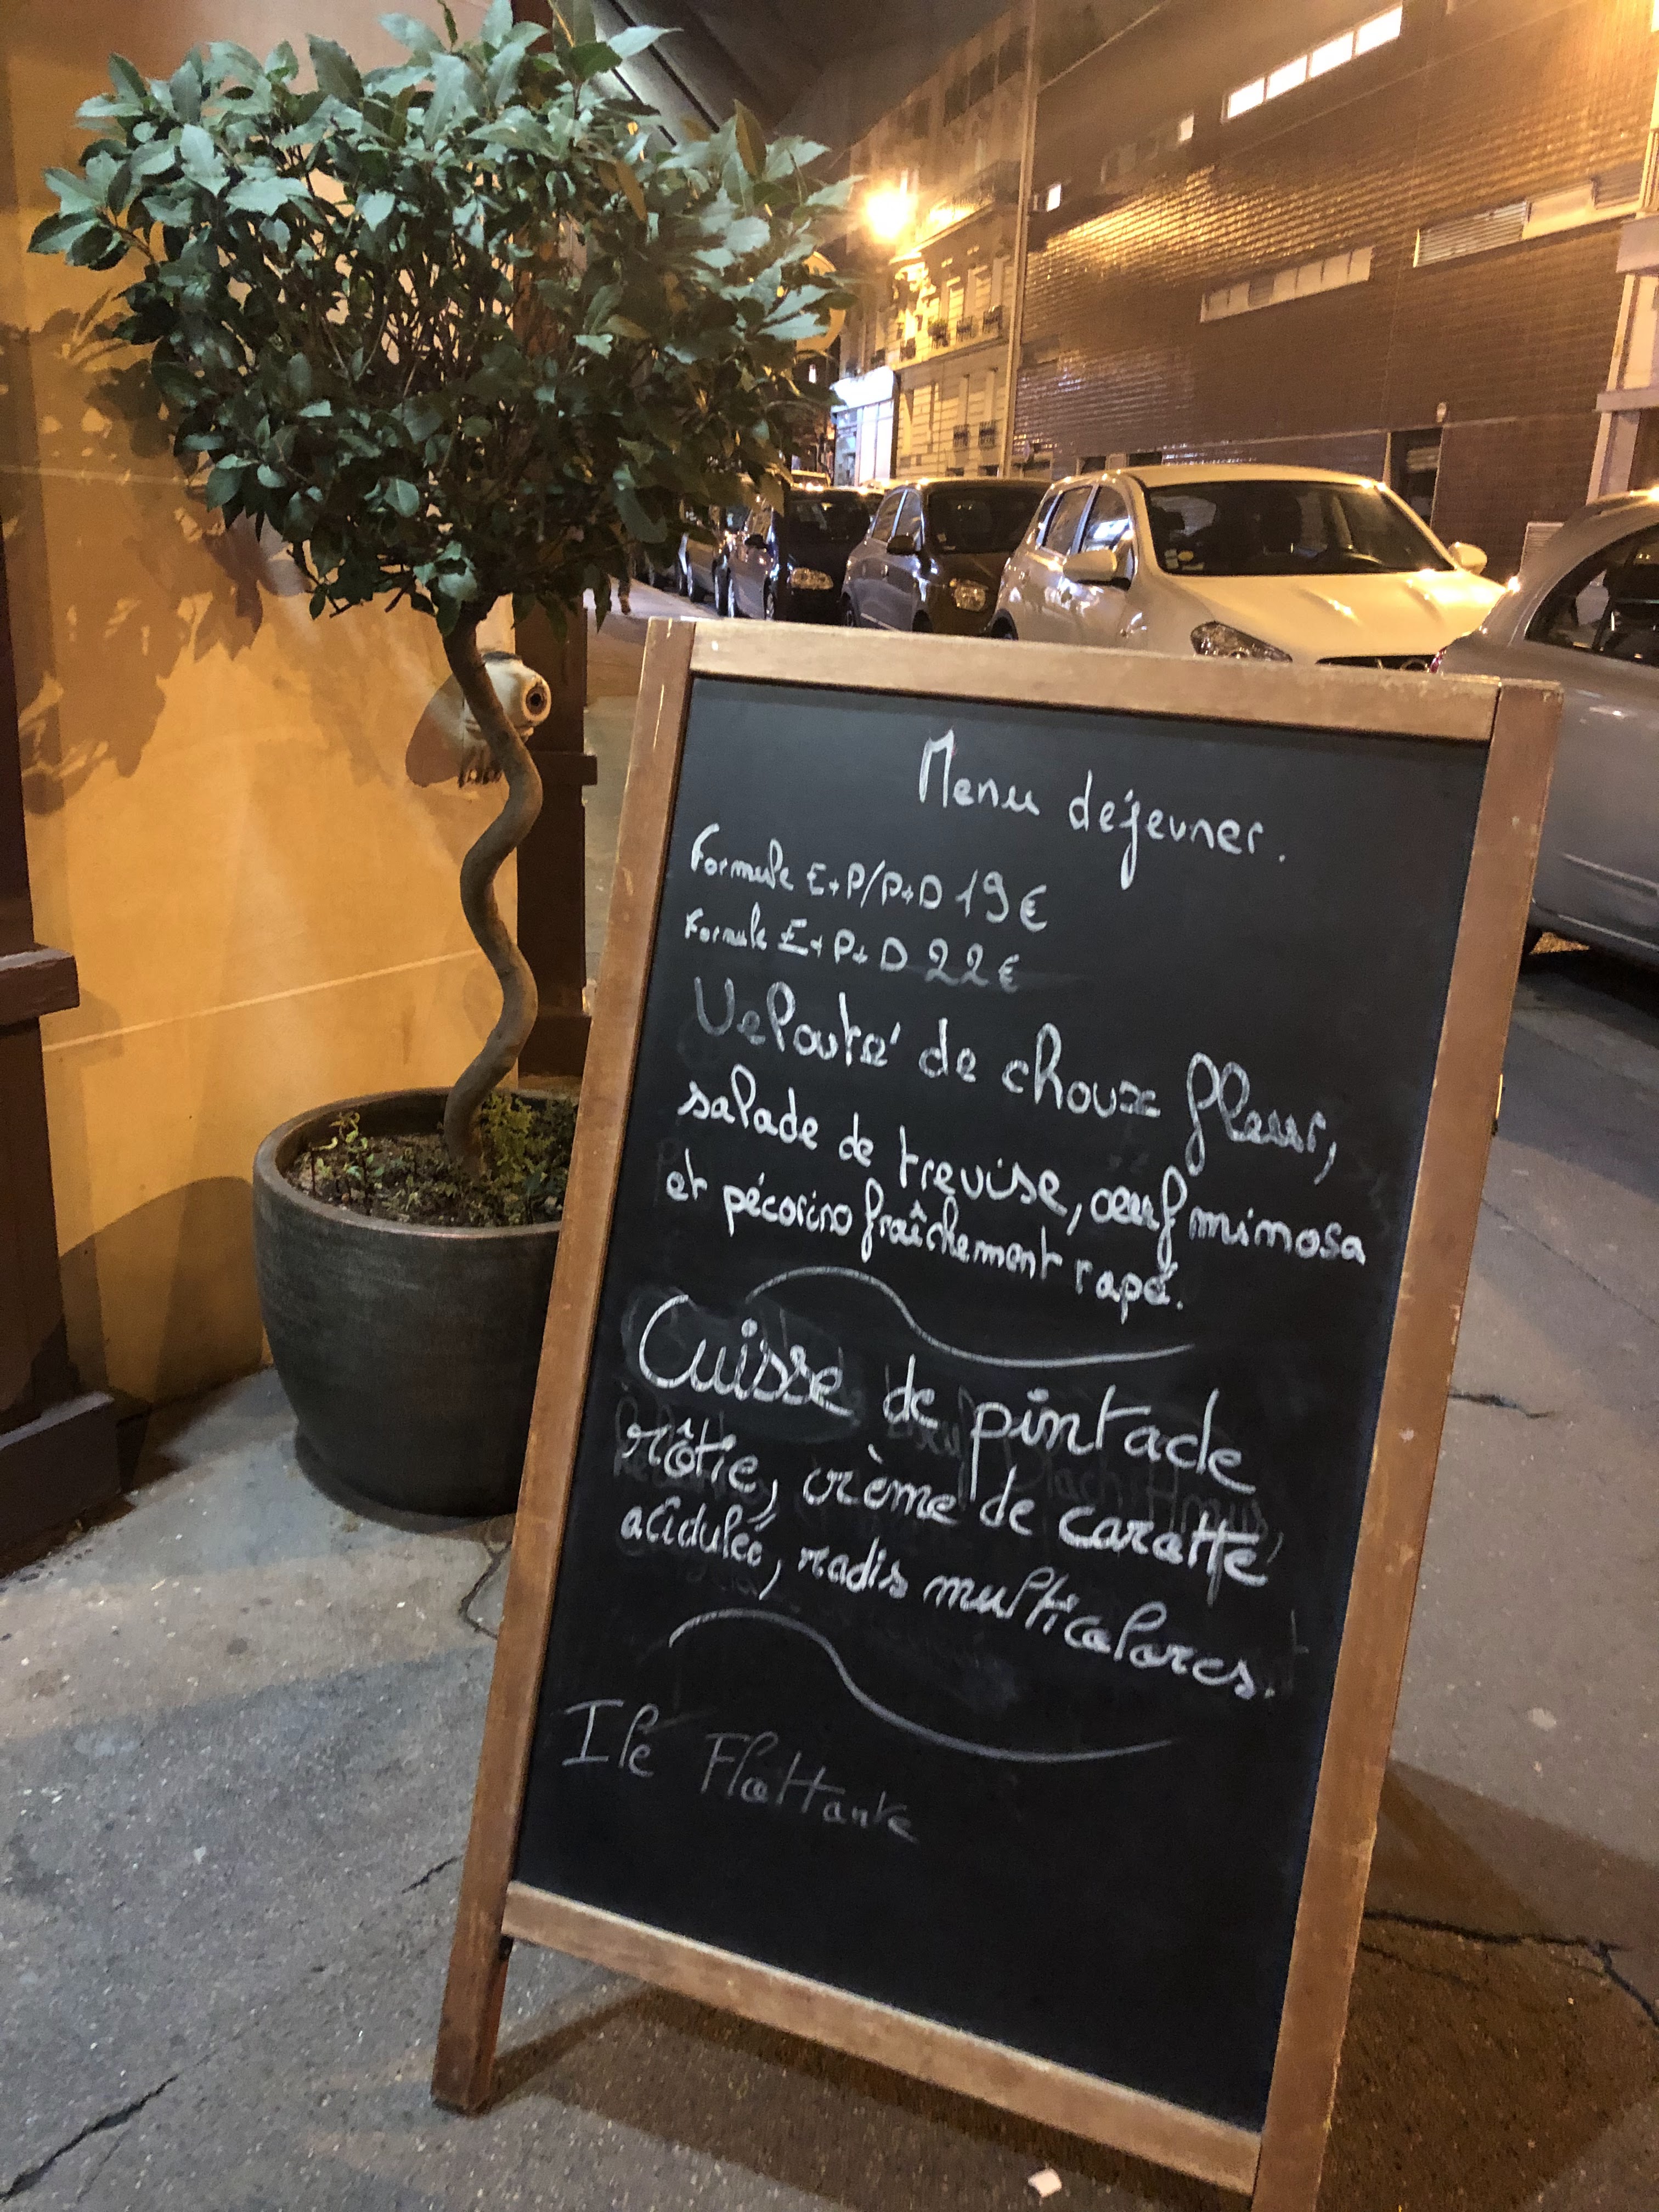 Menu déjeuner.
Formule E+P/P+D 19€
Formule E+P+D 22€
Velouté de choux fleur,
salade de trevise, œuf mimosa
et pécorino fraîchement rapé.
Cuisse de pintade
rôtie, crème de carotte
acidulée, radis multicolores.
Ile Flottante